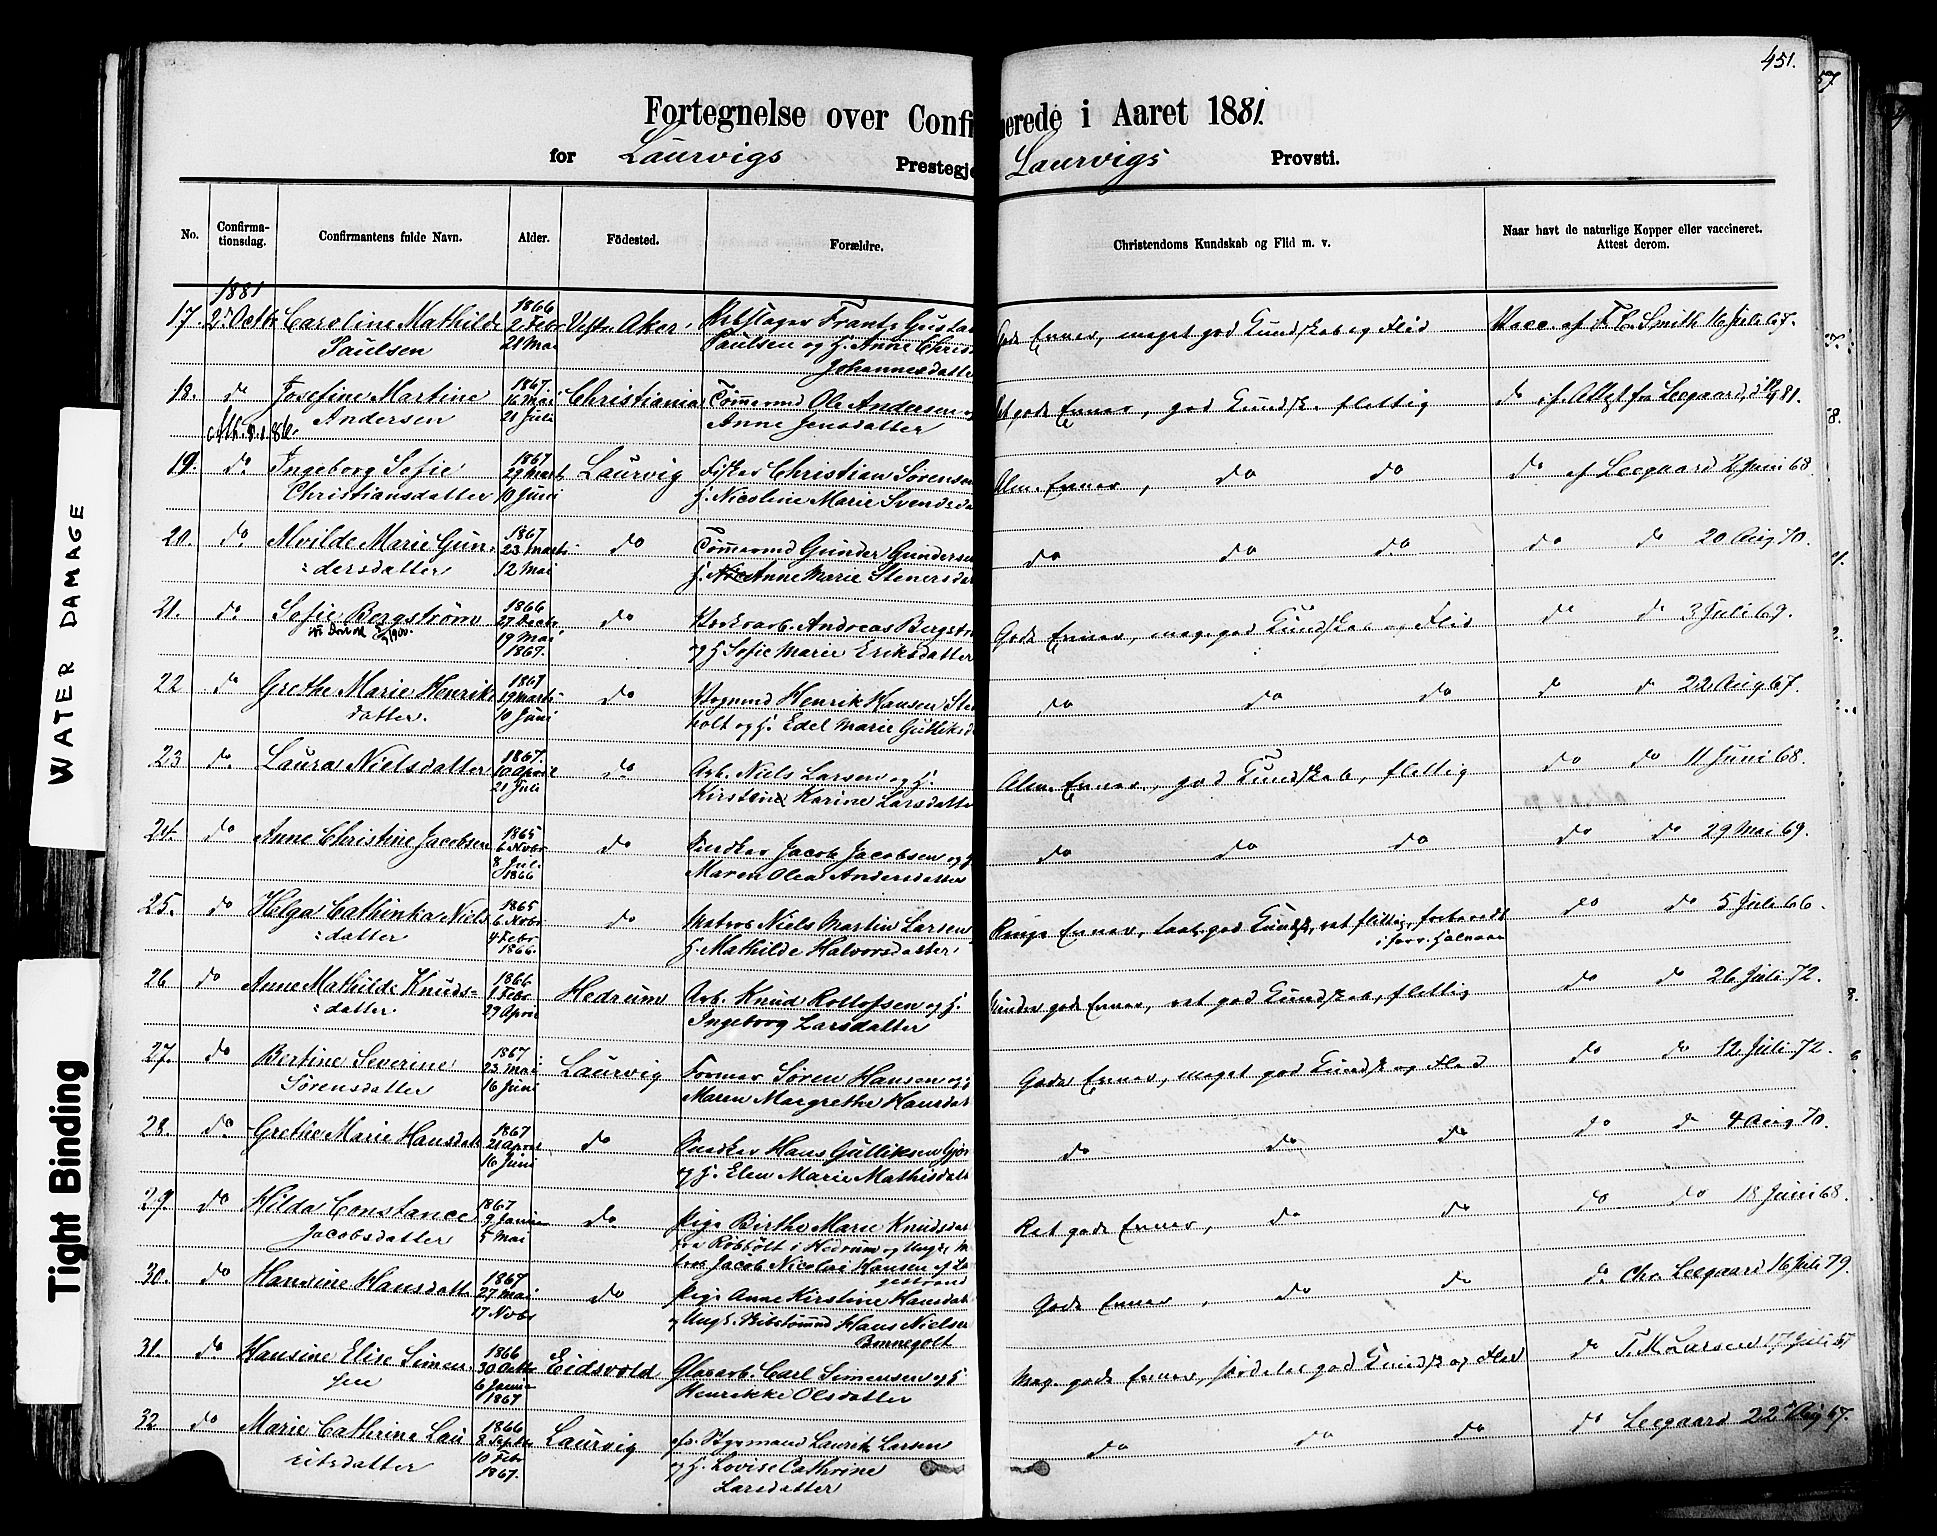 451.
Fortegnelse over Confi nerede i Aaret 1881.
for Laurvigs Prestegje Laurvigs Provsti.
No. Confirma-tionsdag. Confirmantens fulde Navn. Alder. Födested. Forældre. Christendoms Kundskab og Flid m. v. Naar havt de naturlige Kopper eller vaccineret. Attest derom.
1881
17. 2. Octb. Caroline Mathilde 1866 2 Febr Vestr. Aker. Frantz Gustav Gode Evner, meget god Kundskab og Flid Vacc. af F. C. Smith 16 Juli 67.
Paulsen 21 Mai Paulsen og H. Anne Chris
Johannesdatter
18. do Josefine Martine 1867. 16 Mai Christiania Tømmermd Ole Andersen Ret gode Evner, god Kundsk. flittig do if. Attest fra Leegaard,
Andersen 21 Juli Anne Jensdatter
19. do Ingeborg Sofie 1867 29 Marts Laurvig Fisker Christian Sörensen Alm. Evner, do do do af Leegaard 2 Juni 68
Christiansdatter 10 Juni H. Nicoline Marie Svends
20. do Alvilde Marie Gun- 1867 23 Marts do Tømmermd Gunder Gunders do do do do do 20 Aug 70.
dersdatter 12 Mai H. Anne Marie Stenersda
21. do Sofie Bergström 1866 27 Decbr do Andreas Bergstr Gode Evner, meg. god Kundskab og Flid do do 3 Juli 69.
19 Mai 1867. og H Sofie Marie Eriksdatter
22 do Grethe Marie Henriks 1867 19 Marts do Vognmd Henrik Hansen Ste do do do do do 22 Aug 67.
datter. 10 Juni holt og H. Edel Marie Gulliksd
23 do Laura Nielsdatter 1867. 10 April do Arb. Niels Larsen og H. Alm. Evner, god Kundskab, flittig do do 11 Juni 68.
21 Juli Kirstine Karine Larsdatter
24. do Anne Christine Jacobsen 1865 6 Novbr do Snedker Jacob Jacobsen og H do do do do do 29 Mai 69.
8 Jul. 1866 Maren Olea Andersdatter
25. do Helga Cathinka Niels 1865 6 Novbr do Matros Niels Martin Larsen Ringe Evner, god Kundsk, ret flittig, do do 5 Juli 66.
datter 4 Febr 1866. H. Mathilde Halvorsdatter
26 do Anne Mathilde Knuds- 1866 1 Febr Hedrum Arb. Knud Rollofsen og H. Mindre gode Evner, ret god Kundskab, flittig do do 26 Juli 72.
datter 29 April Ingeborg Larsdatter
27. do Bertine Severine 1867 23 Mai Laurvig Former Sören Hansen og Gode Evner, meget god Kundsk og Flid do do 12 Juli 72.
Sörensdatter 16 Juni Maren Margrethe Hansdat
28. do Grethe Marie Hansdatt 1867 21 April do Snedker Hans Gulliksen Gjor do do do do do 4 Aug 70.
16 Juni og H. Elen Marie Mathisdatt
29. do Hilda Constance 1867 9 Januar do Pige Birthe Marie Knudsdat Ret gode Evner, do do do do 18 Juni 68.
Jacobsdatter 5 Mai fra i Hedrum og Ungk. Ma
tros Jacob Nicolai Hansen af La
gestrand
30. do Hansine Hansdatt 1867 27 Mai do Pige Anne Kirstine Hansdat Gode Evner, do do do Chr. Leegaard 16 Juli 79.
17 Novbr og Ungk. Skibstømmd Hans Nielsen
31. do Hansine Elise Simon 1866 30 Octbr Eidsvold Glasarb. Carl Simonsen og H Meg. gode Evner, særdeles god Kundsk og Flid do T. M. Larsen 17 Juli 67
sen 6 Januar 1867 Henrikke Olsdatter
32 do Marie Cathrine Lau 1866 8 Septbr Laurvig Styrmand Laurits Larsen do do do do Leegaard 22 Aug 67.
ritsdatter 10 Febr 1867. og H. Lovise Cathrine
Larsdatter
WATER DAMAGE
Tight Binding